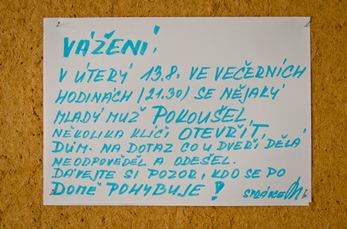 VÁŽENÍ!
V ÚTERÝ 13.8. VE VEČERNÍCH
HODINÁCH (21.30) SE NĚJAKÝ
MLADÝ MUŽ POKOUŠEL
NĚKOLIKA KLÍČI OTEVŘÍT,
DŮM. NA DOTAZ CO U DVEŘÍ DĚLÁ
NEODPOVĚDĚL A ODEŠEL.
DÁVEJTE SI POZOR, KDO SE PO
DOMĚ POHYBUJE!